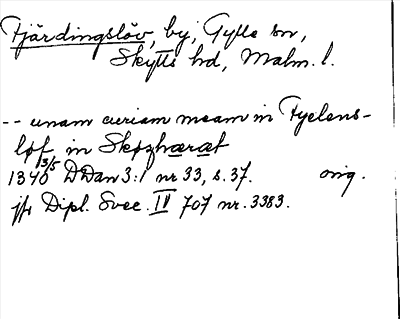 Fjärdingslöv, by, Gylle sn,
Skytts hd, Malm. l.
-- unam curiam meam in Fyelens-
løf in Skøzhæræt
1340 3/5 DDan 3:1 nr 33, s. 37. orig.
jfr Dipl. Svec. IV 707 nr. 3383.